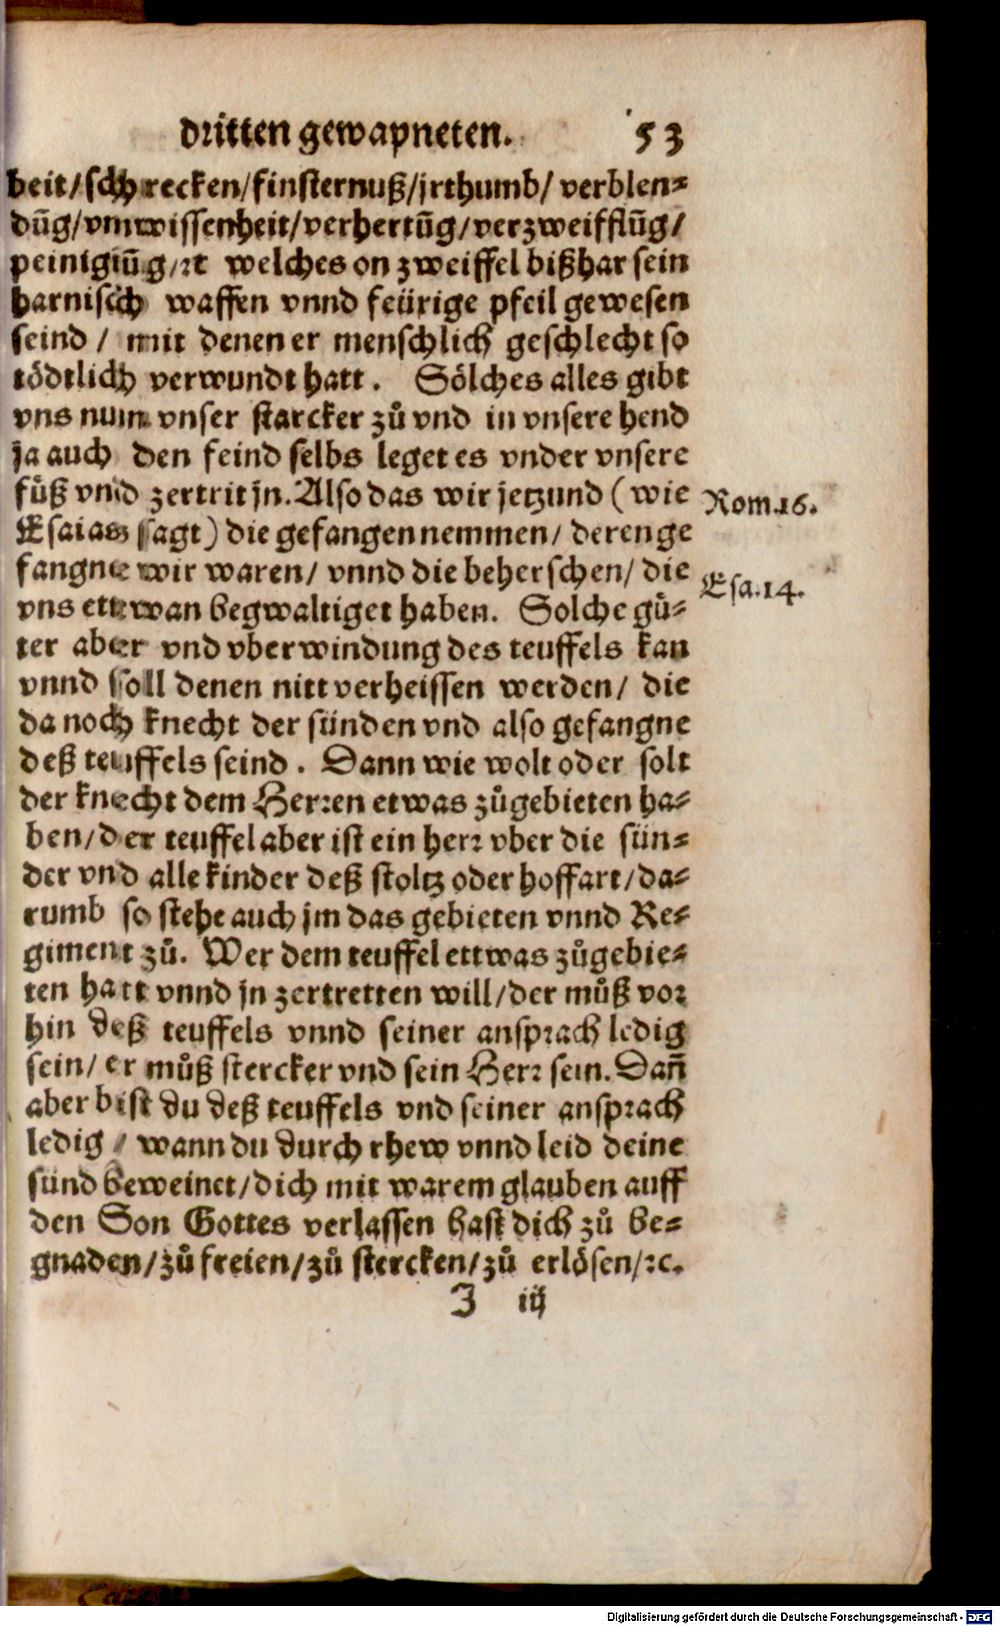 dritten gewapneten. 53
beit/schrecken/finsternuß/jrthumb/verblen-
dūg/vnwissenheit/verhertūg/verzweifflūg/
peinigūg/ꝛc welches on zweiffel bißhar sein
harnisch waffen vnnd feürige pfeil gewesen
seind/ mit denen er menschlich geschlecht so
tödtlich verwundt hatt. Sölches alles gibt
vns nun vnser starcker zů vnd in vnsere hend
ja auch den feind selbs leget es vnder vnsere
fůß vnd zertrit jn. Also das wir jetzund (wie
Rom.16.
Esaias sagt) die gefangen nemmen/ deren ge
fangne wir waren/ vnnd die beherschen/ die
Esa.14.
vns ettwan begwaltiget haben. Solche gů-
ter aber vnd vberwindung des teuffels kan
vnnd soll denen nitt verheissen werden/ die
da noch knecht der sünden vnd also gefangne
deß teuffels seind. Dann wie wolt oder solt
der knecht dem Herꝛen etwas zůgebieten ha-
ben/der teuffel aber ist ein herꝛ vber die sün-
der vnd alle kinder deß stoltz oder hoffart/da-
rumb so stehe auch jm das gebieten vnnd Re-
giment zů. Wer dem teuffel ettwas zůgebie-
ten hatt vnnd jn zertretten will/der můß voꝛ
hin deß teuffels vnnd seiner anspꝛach ledig
sein/ er můß stercker vnd sein Herꝛ sein. Dañ
aber bist du deß teuffels vnd seiner anspꝛach
ledig/ wann du durch rhew vnnd leid deine
sünd beweinet/dich mit warem glauben auff
den Son Gottes verlassen hast dich zů be-
gnaden/zů freien/zů stercken/zů erlösen/ꝛc.
J iij
Digitalisierung gefördert durch die Deutsche Forschungsgemeinschaft - DFG